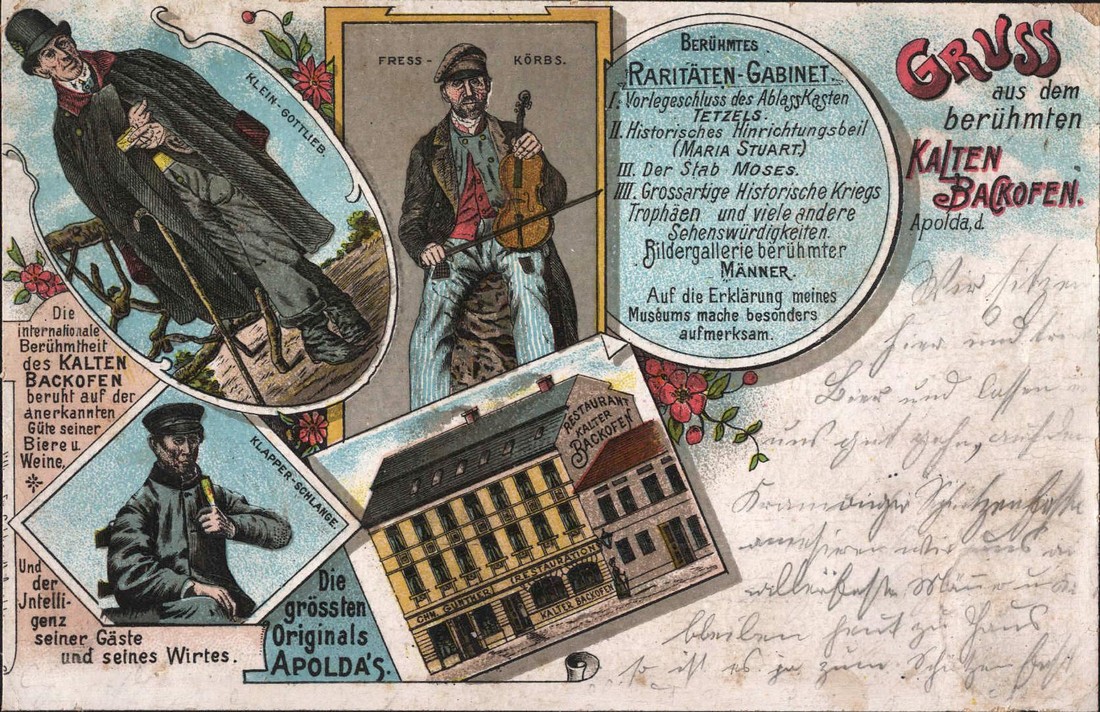 KLEIN-GOTTLIEB.
FRESS - KÖRBS.
BERÜHMTES
RARITÄTEN-GABINET.
I. Vorlegeschluss des AblassKasten
TETZELS.
II. Historisches Hinrichtungsbeil
(MARIA STUART)
III. Der Stab MOSES.
IIII. Grossartige Historische Kriegs
Trophäen und viele andere
Sehenswürdigkeiten.
Bildergallerie berühmter
MÄNNER.
Auf die Erklärung meines
Museums mache besonders
aufmerksam.
GRUSS
aus dem
berühmten
KALTEN
BACKOFEN.
Apolda, d.
Wir sitzen
hier und
Bier und lassen
uns gut gehn,
Schützenfeste
amüsieren wir uns
bleiben heut zu Haus
so ist es ja zum Schützenfest
Die
internationale
Berühmtheit
des KALTEN
BACKOFEN
beruht auf der
anerkannten
Güte seiner
Biere u.
Weine,
Und
der
Jntelli-
genz
seiner Gäste
und seines Wirtes.
KLAPPER-SCHLANGE.
Die
grössten
Originals
APOLDA'S.
RESTAURANT
KALTER
BACKOFEN
CHR. GÜRTNER RESTAURATION
KALTER BACKOFEN